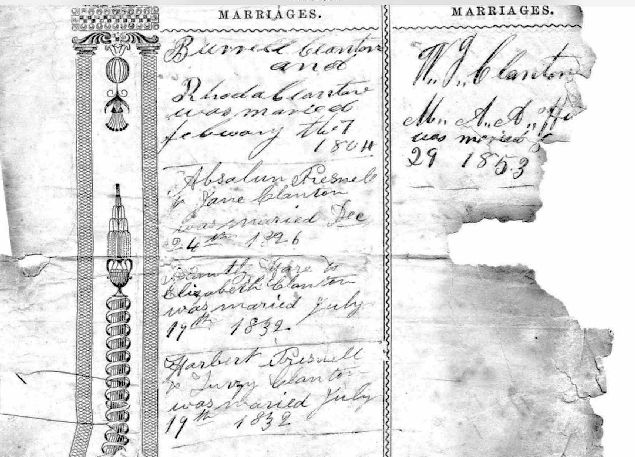 MARRIAGES.
Burrell Clanton
and
Rhoda Clanton
was maried
febuary the 7
1804
Absalum Presnell
& Jane Clanton
was maried Dec
24th 1826
Hare &
Elizabeth Clanton
was maried July
19th 1832
Harbert Presnell
& Clanton
was maried July
19th 1832
MARRIAGES.
W. J. Clanton
M. A. A.
was maried
29 1853